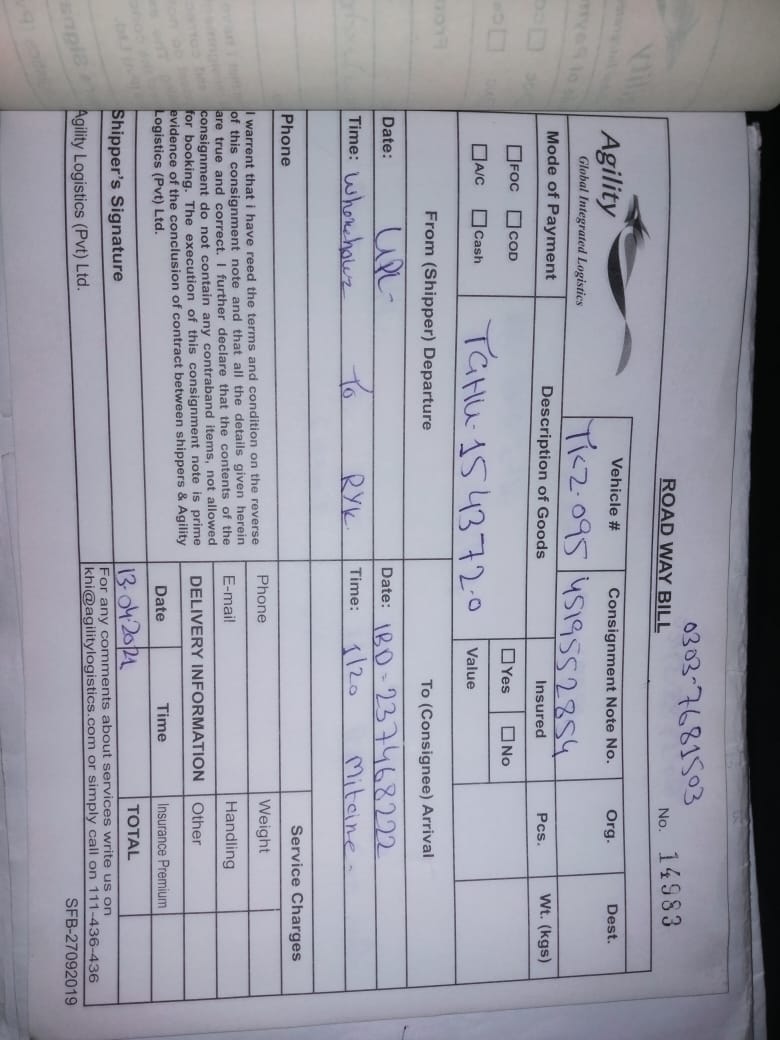 0303-7681503
ROAD WAY BILL
No. 14983
Agility
Global Integrated Logistics
Vehicle # Consignment Note No. Org. Dest.
TKZ-095 4519552854
Mode of Payment Description of Goods Insured Pcs. Wt. (kgs)
FOC COD Yes No
A/C Cash TGHU-154372-0 Value
From (Shipper) Departure To (Consignee) Arrival
Date: UPL- Date: IBD-237468222
Time: To RYK Time: 1/20
Phone Service Charges
I warrent that i have reed the terms and condition on the reverse
of this consignment note and that all the details given herein
are true and correct. I further declare that the contents of the
consignment do not contain any contraband items, not allowed
for booking. The execution of this consignment note is prime
evidence of the conclusion of contract between shippers & Agility
Logistics (Pvt) Ltd.
Phone Weight
E-mail Handling
DELIVERY INFORMATION Other
Date Time Insurance Premium
13-04-2021 TOTAL
Shipper's Signature
For any comments about services write us on
khi@agilitylogistics.com or simply call on 111-436-436
Agility Logistics (Pvt) Ltd.
SFB-27092019